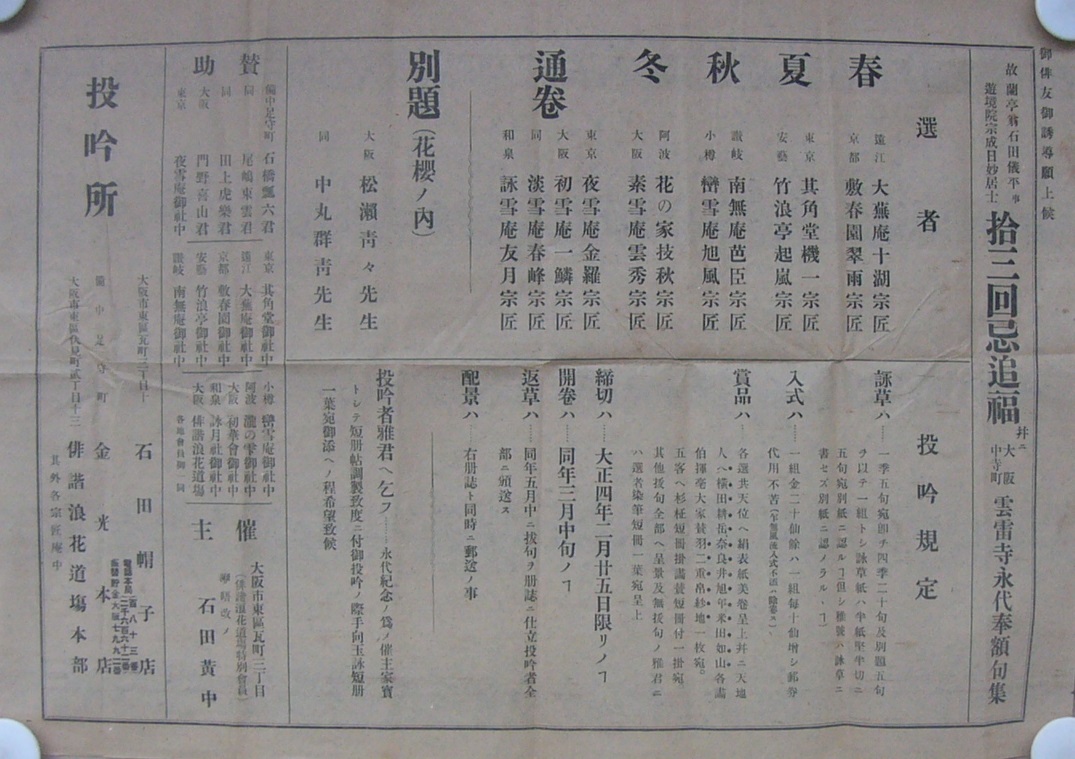 御俳友御誘導願上候
故 蘭亭翁石田儀平事
遊境院宗成日妙居士
拾三回忌追福
并ニ
大阪
中寺町
雲雷寺永代奉額句集
選者
春
遠江 大蕪庵十湖宗匠
京都 敷春園翠雨宗匠
夏
東京 其角堂機一宗匠
安藝 竹浪亭起嵐宗匠
秋
讃岐 南無庵芭臣宗匠
小樽 巒雪庵旭風宗匠
冬
阿波 花の家技秋宗匠
大阪 素雪庵雲秀宗匠
通卷
東京 夜雪庵金羅宗匠
大阪 初雪庵一鱗宗匠
同 淡雪庵春峰宗匠
和泉 詠雪庵友月宗匠
別題(花櫻ノ內)
大阪 松瀬青々先生
同 中丸群青先生
投吟規定
詠草ハ……一季五句宛卽チ四季二十句及別題五句
ヲ以テ一組トシ詠草紙ハ半紙竪半切ニ
五句宛別紙ニ認ルヿ但シ雅號ハ詠草ニ
書セズ別紙ニ認メラルヽヿ
入式ハ……一組金二十仙餘ハ一組每十仙增シ郵券
代用不苦
賞品ハ……各選共天位ヘ絹表紙美卷呈上幷ニ天地
人ヘ橫田耕岳奈良井旭年米田如山各畵
伯揮毫大家賛羽二重帛紗地一枚宛
五客ヘ杉柾短冊掛畵賛短冊付一掛宛
其他拔句全部ヘ呈景及無拔句ノ雅君ニ
ハ選者染筆短冊一葉宛呈上
締切ハ……大正四年二月廿五日限リノヿ
開卷ハ……同年三月中旬ノヿ
返草ハ……同年五月中ニ拔句ヲ册誌ニ仕立投吟者全
部ニ頒送ス
配景ハ……右册誌ト同時ニ郵送ノ事
投吟者雅君ヘ乞フ……永代紀念ノ爲メ催主家寶
トシテ短册帖調製致度ニ付御投吟ノ際手向玉詠短册
一葉宛御添ヘノ程希望致候
賛助
備中足守町 石橋瓢六君
同 尾嶋東雲君
同 田上虎樂君
大阪 門野喜山君
東京 夜雪庵御社中
東京 其角堂御社中
遠江 大蕪庵御社中
京都 敷春園御社中
安藝 竹浪亭御社中
讃岐 南無庵御社中
小樽 巒雪庵御社中
阿波 瀧の雫御社中
大阪 初華會御社中
和泉 詠月社御社中
大阪 俳諧浪花道塲
各地會員御一同
主催
大阪市東區瓦町三丁目
(俳諧浪花道塲特別會員)
石田黄中
投吟所
大阪市東區瓦町三丁目
石田帽子店
備中足守町
金光本店
大阪市東區伏見町貳丁目十三
俳諧浪花道塲本部
其外各宗匠庵中